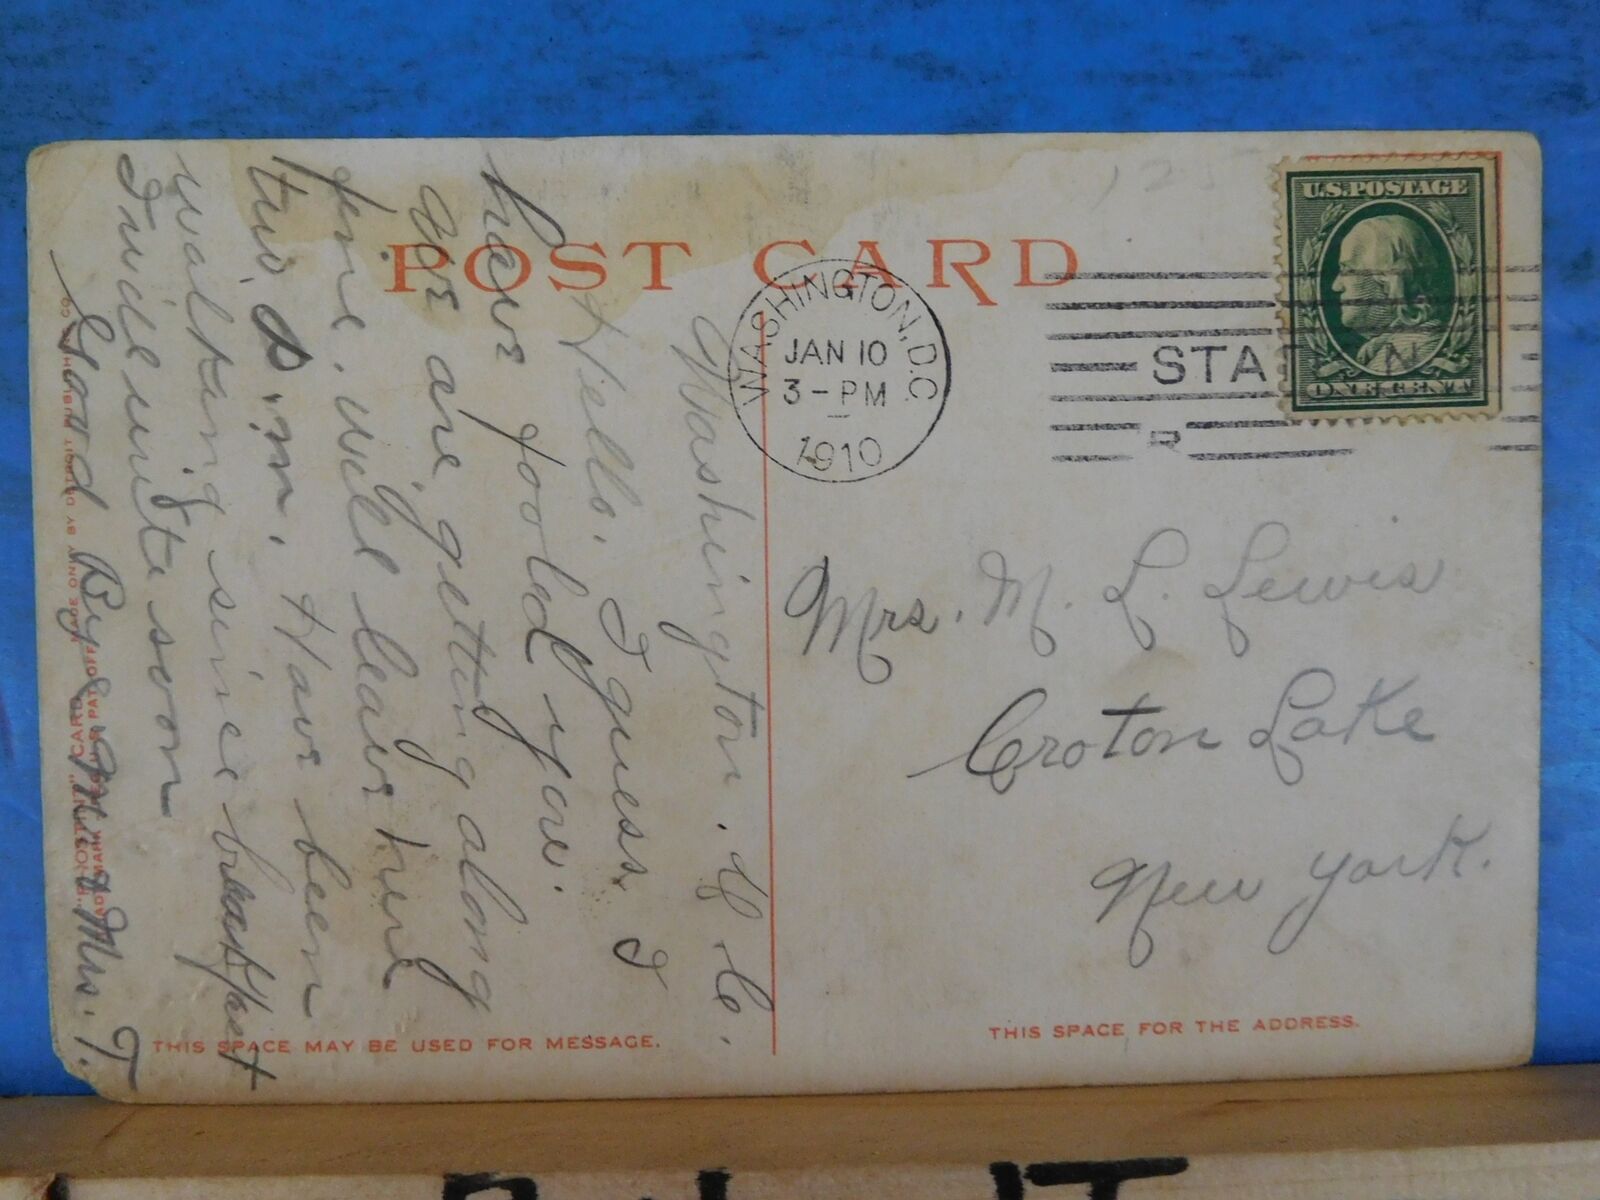 125
U.S. POSTAGE
ONE CENT
POST CARD
WASHINGTON, D.C.
JAN 10
3-PM
1910
STA N
R
Washington. D. C.
Hello. I guess I
have fooled you.
We are getting along
fine. will leave here
two p.m. Have been
walking since breakfast
I will write soon
Good Bye Mrs. T.
Mrs. M. L. Lewis
Croton Lake
New York.
"PHOSTINT" CARD MADE ONLY BY DETROIT PUBLISHING CO.
THIS SPACE MAY BE USED FOR MESSAGE.
THIS SPACE FOR THE ADDRESS.